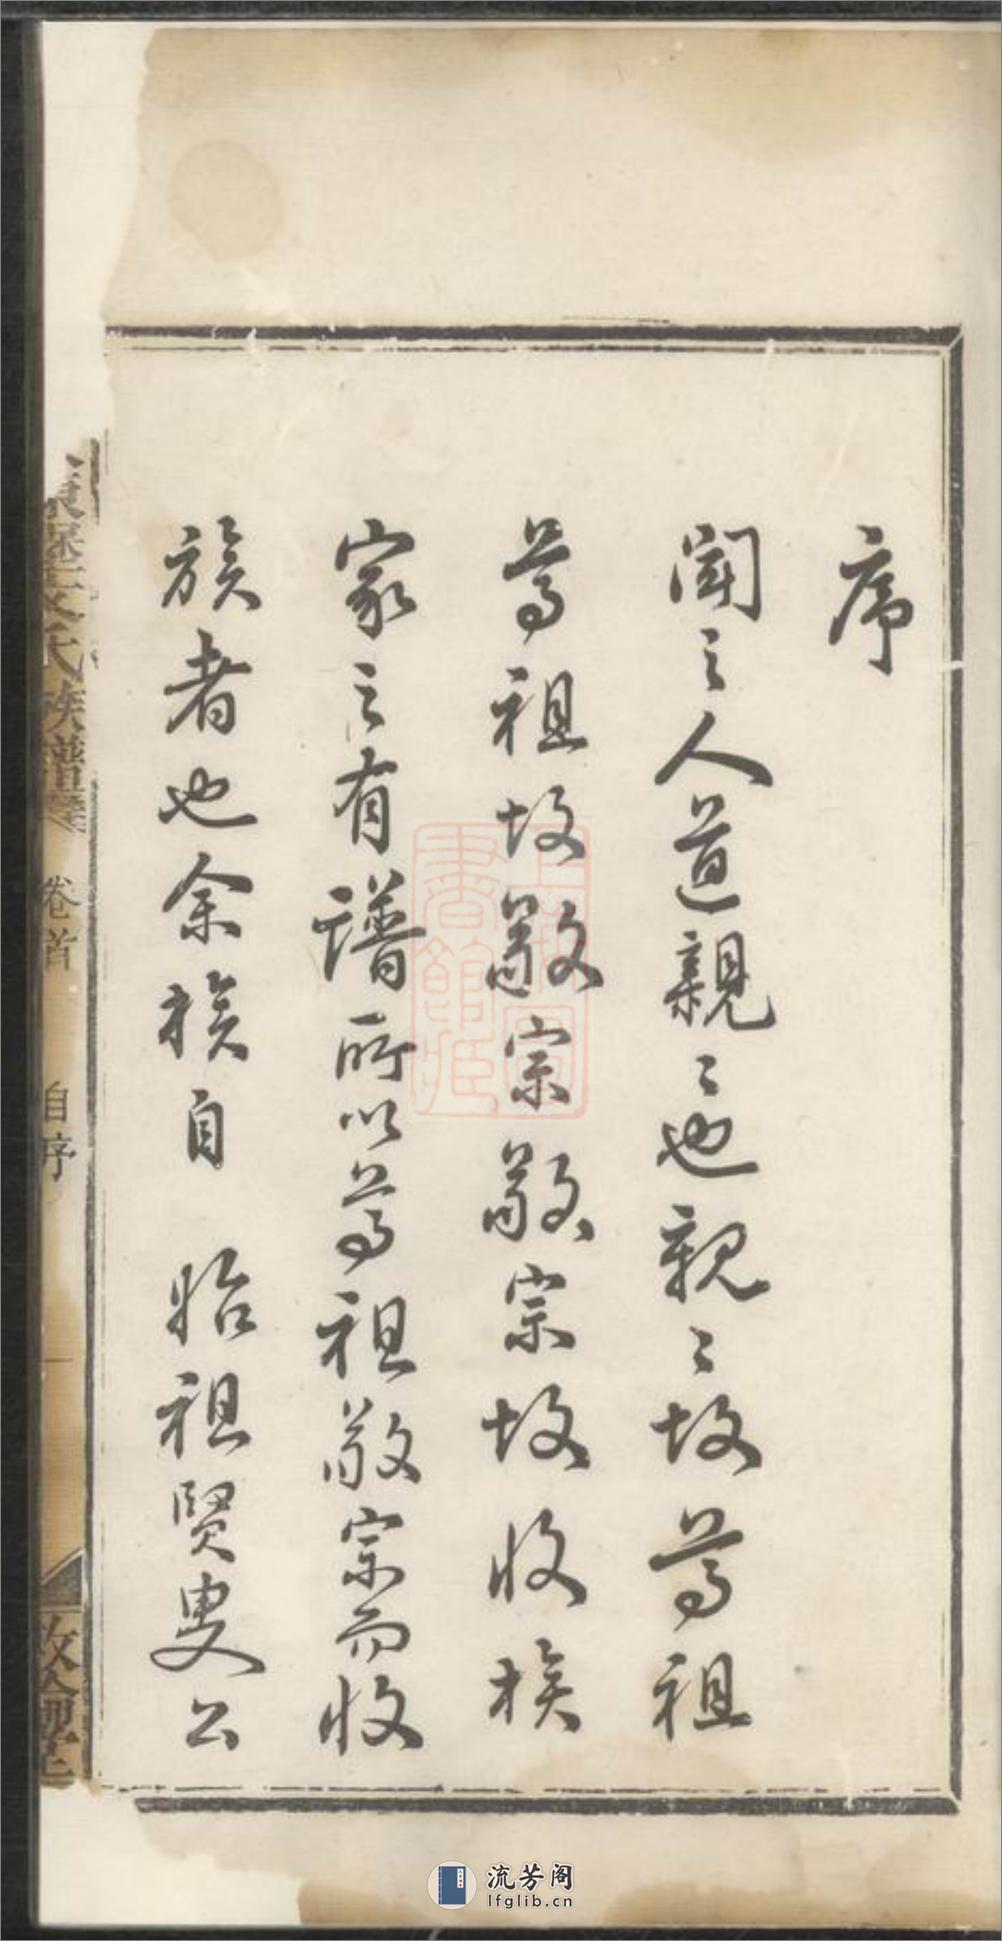 序
聞之人道親〻也親〻故尊祖
尊祖故敬宗敬宗故收族
家之有譜所以尊祖敬宗而收
族者也余族自 始祖賢叟公
氏族譜
卷首
自序
一
敘倫堂
流芳阁
lfglib.cn